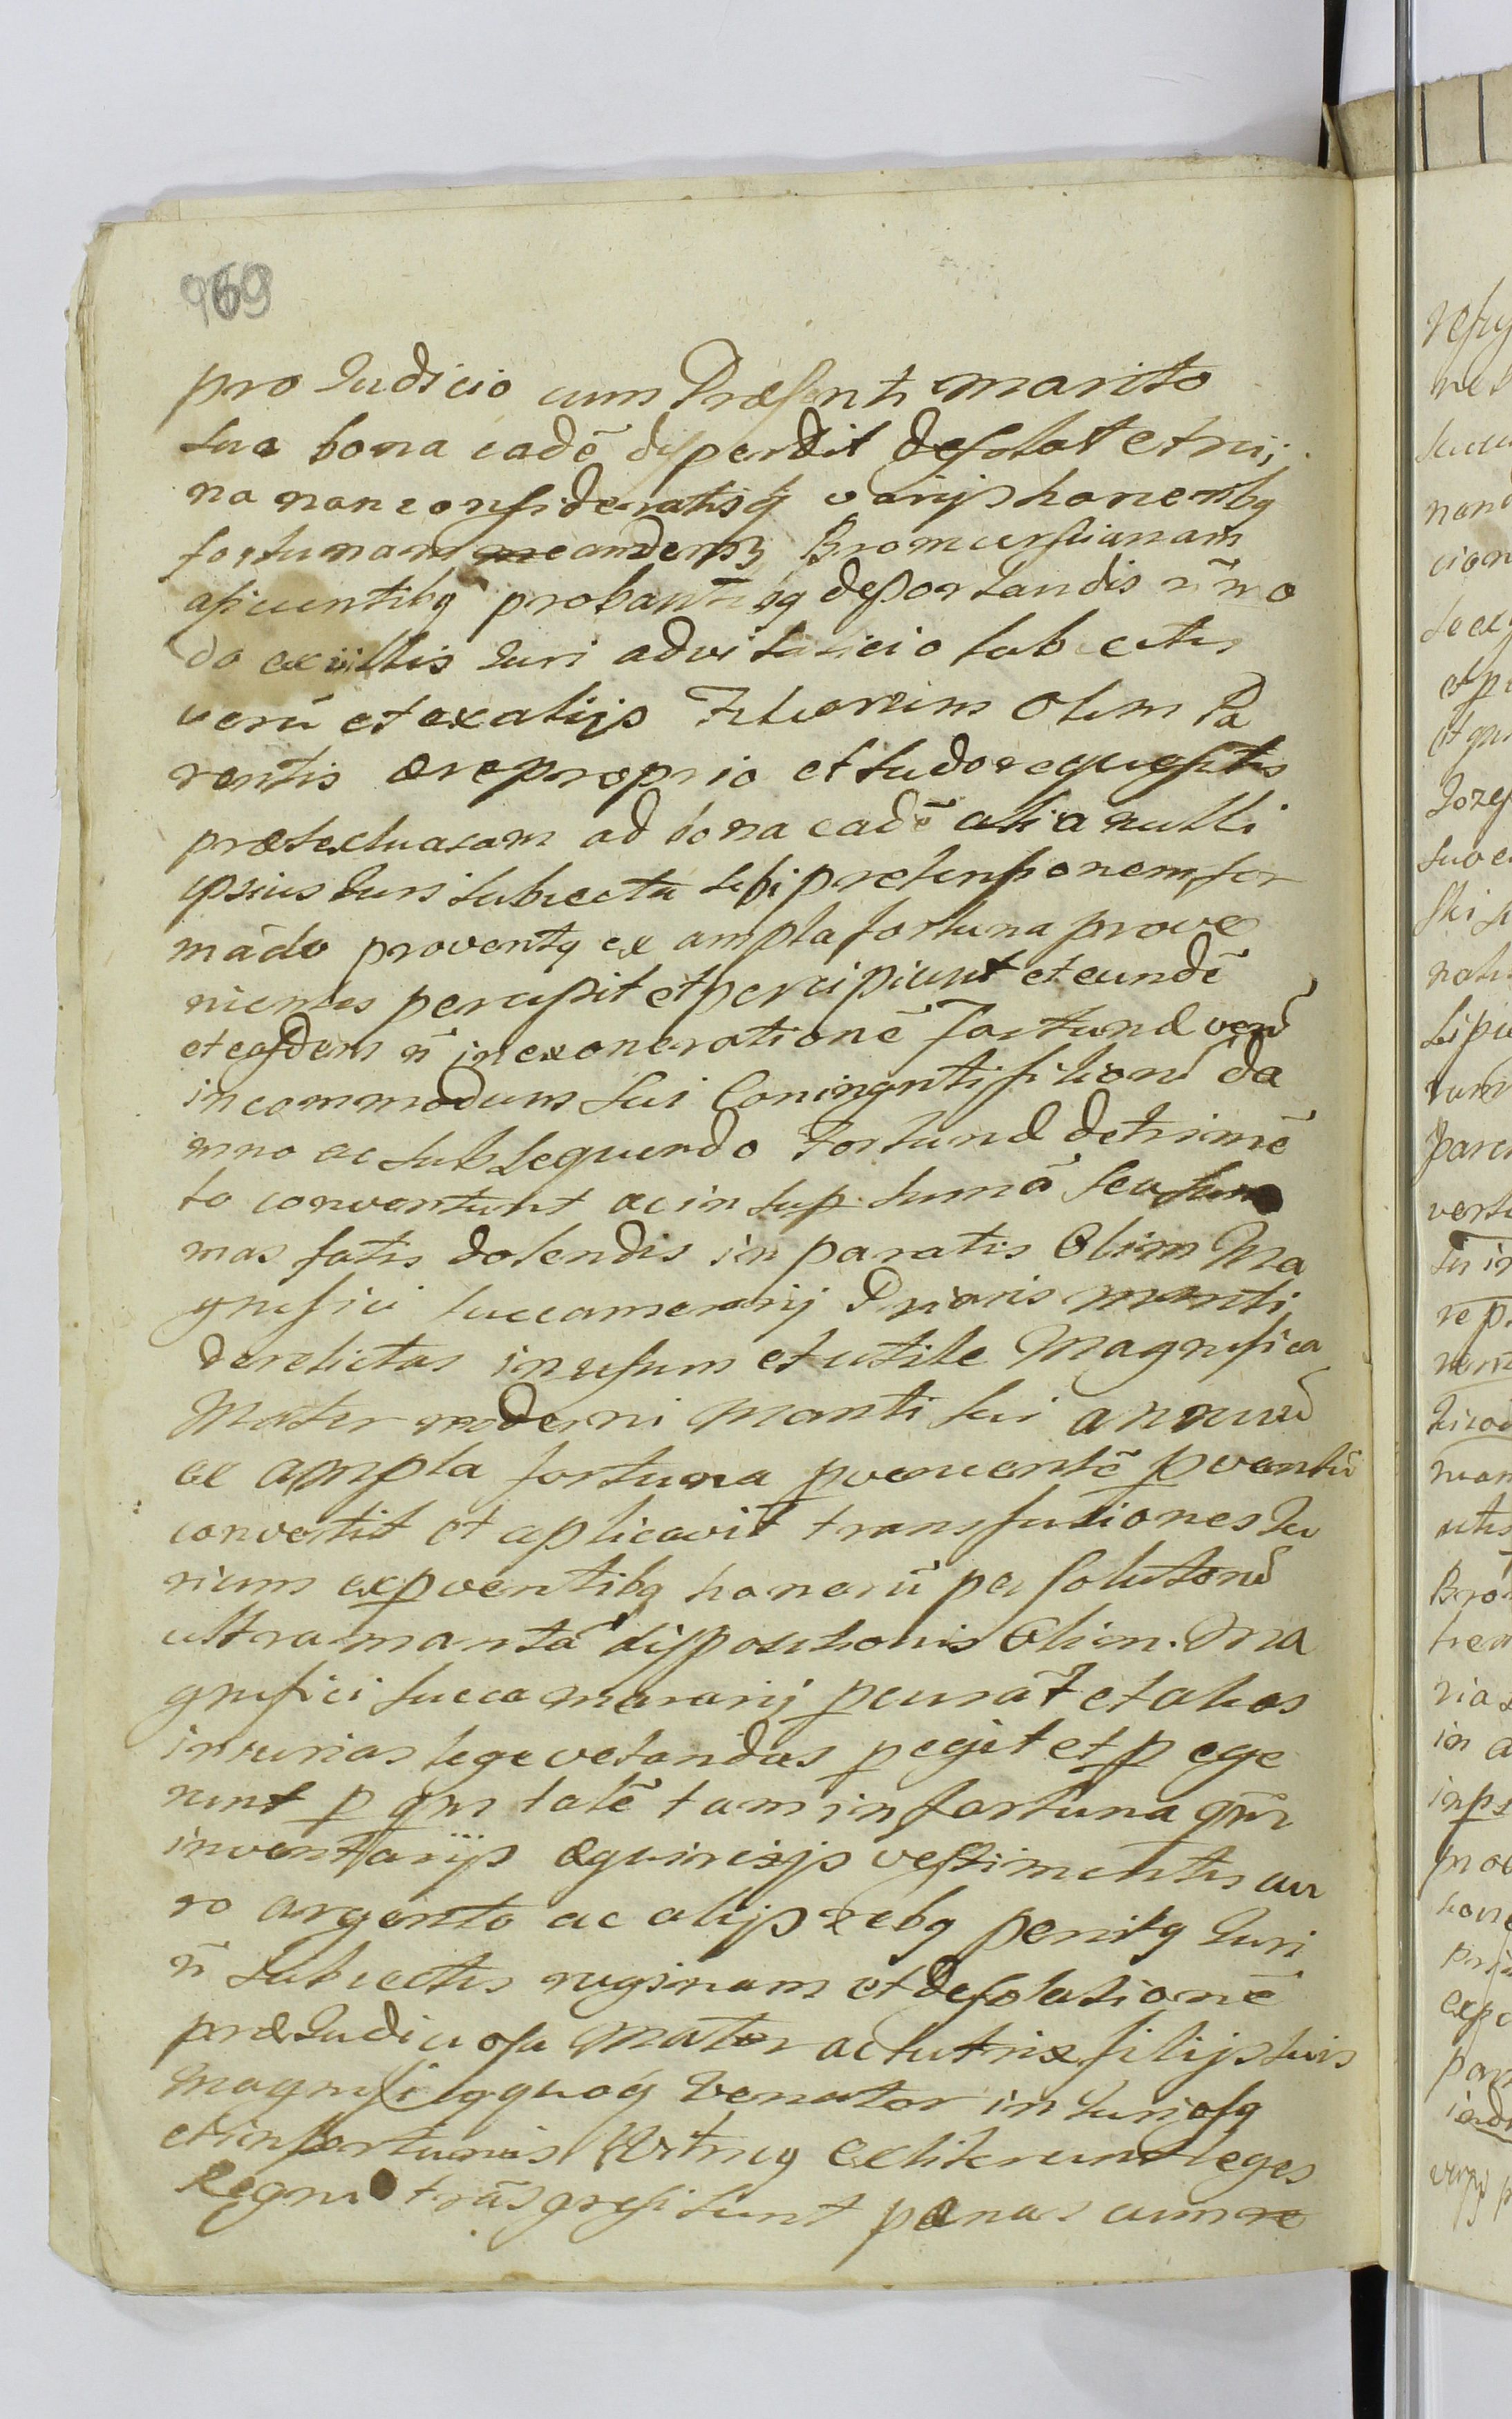 969
pro Judicio cum Præsenti marito
sua bona eadē disperdit desolat et rui
na non consideratisq̃ varijs honeribq
fortunam eandemq Bromierscianam
aficientibq probantibq deportandis ñ mo
do ex illis Juri advitalicio subiectis
verũ et ex alijs Filiorum Olim Pa
rentis ære proprio et sudore quesitis
prætextuatam ad bona eadē alia nulli
ipsius Juri subiecta sibi pretensionem for
mãdo proventq ex ampla fortuna prove
nientes percepit et percipiunt et eundē
et eosdem ñ in exonerationē Fortunæ verũ
in commodum sui Coniugati filiorũ da
mno ac subsequendo Fortunæ detrimē
to convertunt ac in sup sumã seu sum
mas satis dolendis in paratis Olim Ma
gnifici succamerarij Prioris mariti
derelictas in usum et utile Magnifica
Mater moderni mariti sui annuũ
ex ampla fortuna pvenientē pventũ
convertit et aplicavit transfusiones Ju
rium ex pventibq honerũ per solutorũ
ultra mentã dispositionis Olim Ma
gnifici succamerarij pcurat et alias
iniurias lege vetandas pegit et p ege
runt p qm talē tam in fortuna qm̃
inventarijs æquirizjs vestimentis au
ro argento ac alijs rebq penitq Juri
ñ subiectis ruginam et desolationē
præJudiciosa Mater ac tutrix filijs suis
Magnificq quoq Venator in Juriosq
et infortunis Vitricq extiterunt leges
Regni trãsgressi sunt pænas cum re